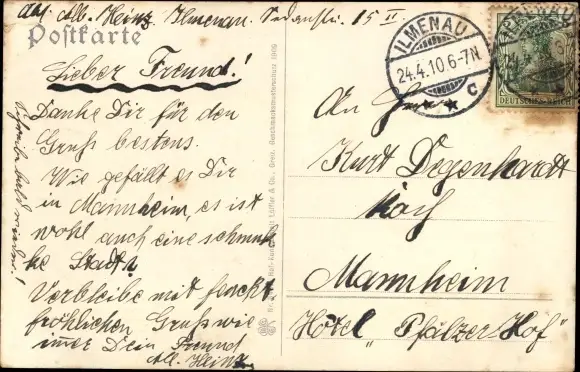 Abs. Alb. Heinz, Ilmenau. Sedanstr. 15 II.
Postkarte
Lieber Freund!
Danke Dir für den
Gruß bestens.
Wie gefällt es Dir
in Mannheim, es ist
wohl auch eine schmuk
ke Stadt?
Verbleibe mit
fröhlichen Gruß wie
imer Dein Freund
Alb. Heinz
Schreibe bald wieder!
ILMENAU
24.4.10.6-7N
C
DEUTSCHES REICH
An Herrn
Kurt Degenhardt
Koch
Mannheim
Hôtel „Pfälzer Hof"